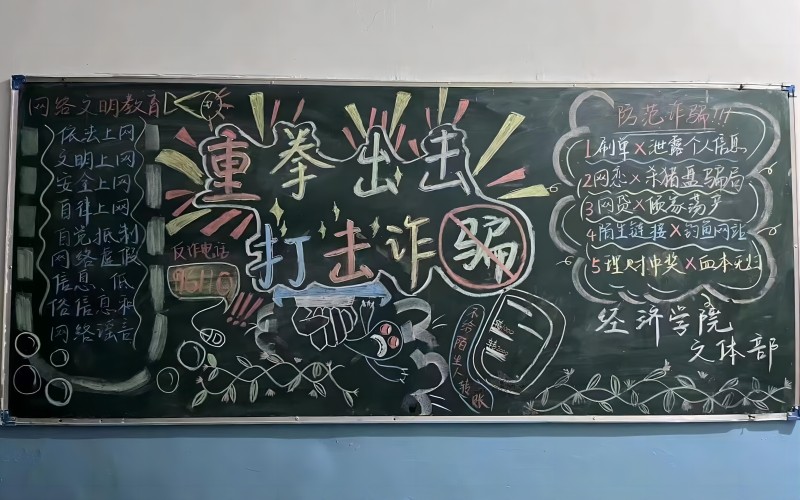 网络文明教育
依法上网
文明上网
安全上网
自律上网
自觉抵制
网络虚假
信息、低
俗信息和
网络谣言
重拳出击
打击诈骗
反诈电话
96110
不给陌生人转账
防范诈骗!!!
1刷单X泄露个人信息
2网恋X杀猪盘骗局
3网贷X倾家荡产
4陌生链接X钓鱼网站
5理财中奖X血本无归
经济学院
文体部